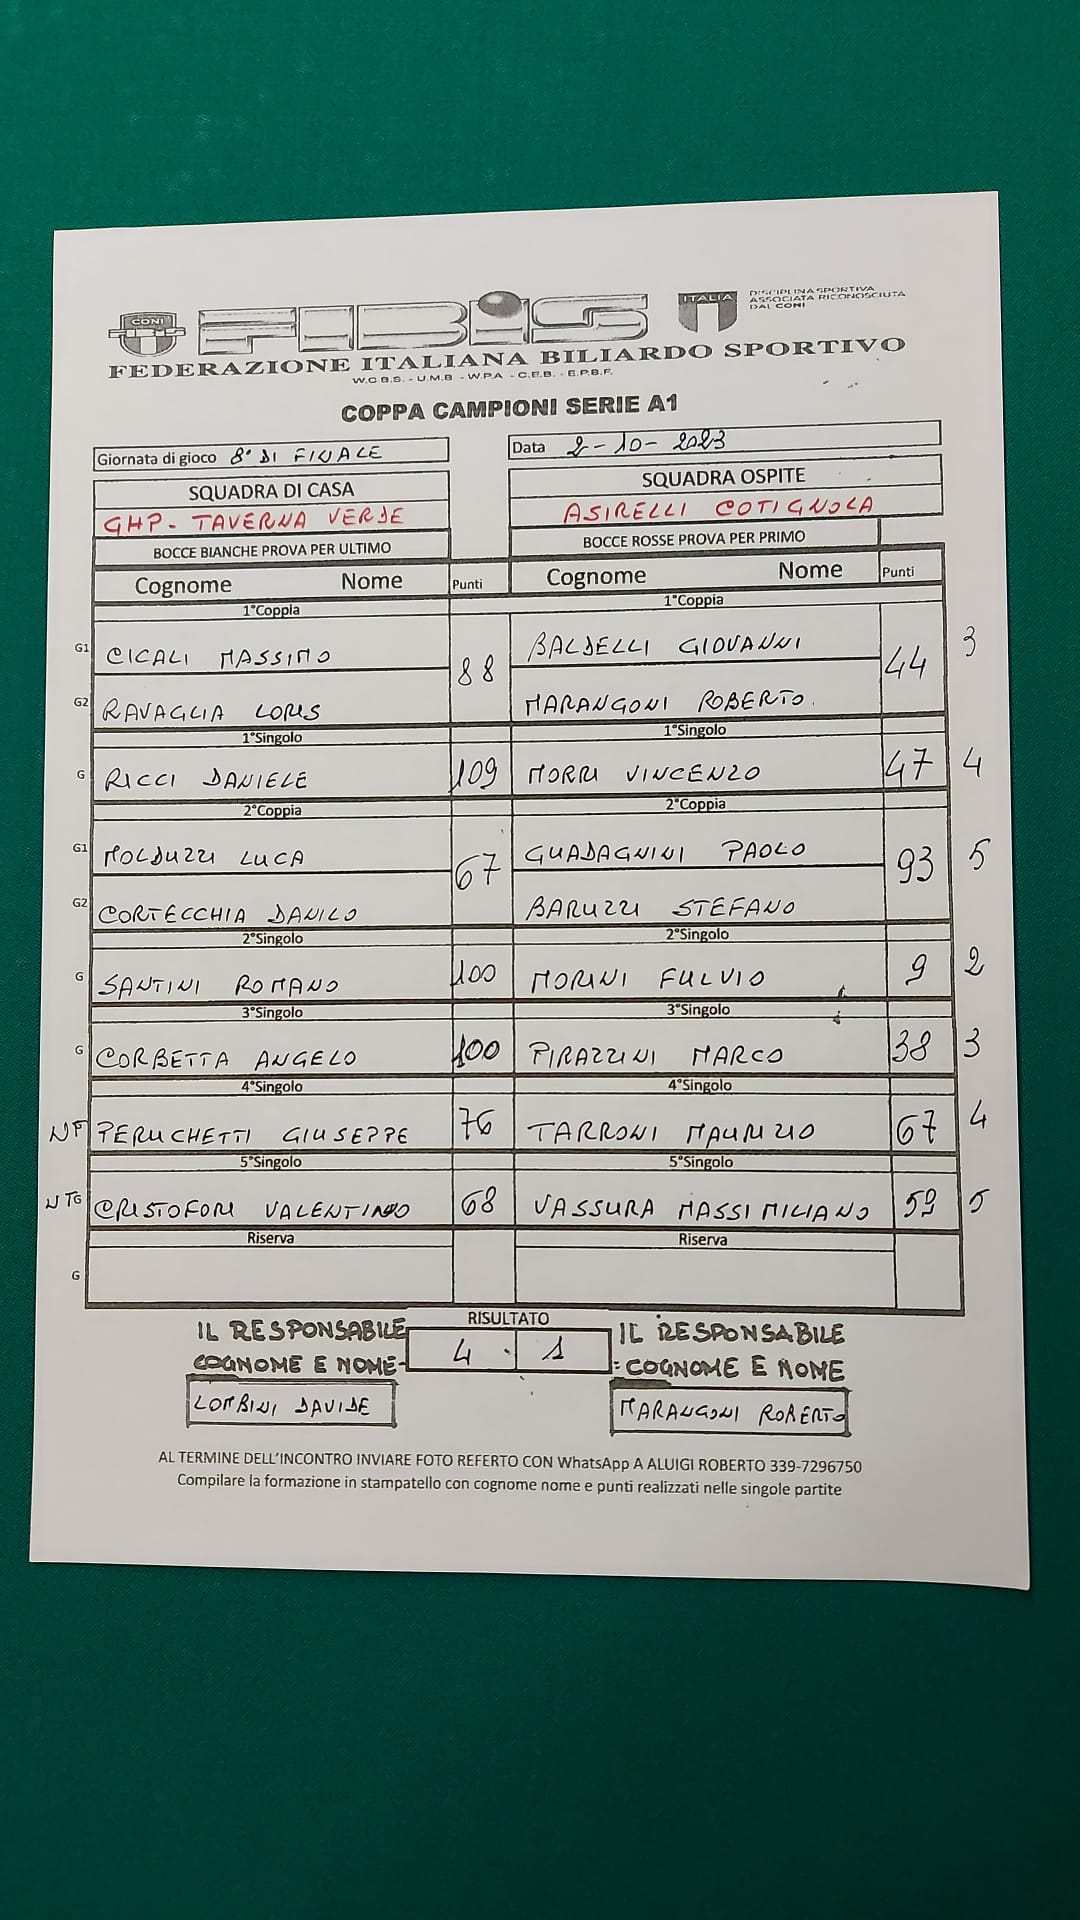 CONI FIBiS ITALIA DISCIPLINA SPORTIVA
ASSOCIATA RICONOSCIUTA
DAL CONI
FEDERAZIONE ITALIANA BILIARDO SPORTIVO
W.C.B.S. - U.M.B - W.P.A - C.E.B. - E.P.B.F.
COPPA CAMPIONI SERIE A1
Giornata di gioco 8° DI FINALE Data 2-10-2023
SQUADRA DI CASA SQUADRA OSPITE
GHP - TAVERNA VERDE ASIRELLI COTIGNOLA
BOCCE BIANCHE PROVA PER ULTIMO BOCCE ROSSE PROVA PER PRIMO
Cognome Nome Punti Cognome Nome Punti
1°Coppia 1°Coppia
G1 CICALI MASSIMO 88 BALDELLI GIOVANNI 44 3
G2 RAVAGLIA LORIS MARANGONI ROBERTO
1°Singolo 1°Singolo
G RICCI DANIELE 109 MORRI VINCENZO 47 4
2°Coppia 2°Coppia
G1 MOLDUZZI LUCA 67 GUADAGNINI PAOLO 93 5
G2 CORTECCHIA DANILO BARUZZI STEFANO
2°Singolo 2°Singolo
G SANTINI ROMANO 100 MORINI FULVIO 9 2
3°Singolo 3°Singolo
G CORBETTA ANGELO 100 PIRAZZINI MARCO 38 3
4°Singolo 4°Singolo
PERUCHETTI GIUSEPPE 76 TARRONI MAURIZIO 67 4
5°Singolo 5°Singolo
CRISTOFORI VALENTINO 68 VASSURA MASSIMILIANO 59 5
Riserva Riserva
G
RISULTATO
IL RESPONSABILE 4 - 1 IL RESPONSABILE
COGNOME E NOME- :COGNOME E NOME
LOMBINI DAVIDE MARANGONI ROBERTO
AL TERMINE DELL'INCONTRO INVIARE FOTO REFERTO CON WhatsApp A ALUIGI ROBERTO 339-7296750
Compilare la formazione in stampatello con cognome nome e punti realizzati nelle singole partite